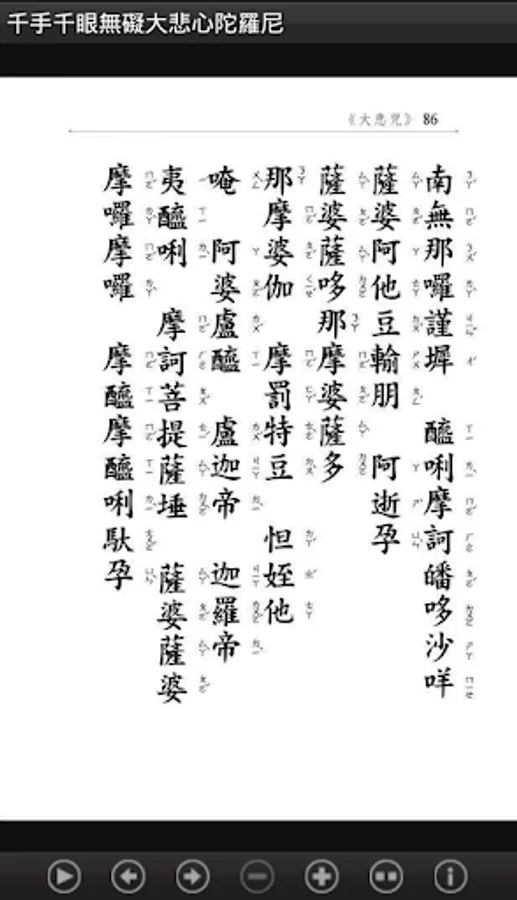 千手千眼無礙大悲心陀羅尼
《大悲咒》 86
南無那囉謹墀 醯唎摩訶皤哆沙咩
薩婆阿他豆輸朋 阿逝孕
薩婆薩哆那摩婆薩多
那摩婆伽 摩罰特豆 怛姪他
唵 阿婆盧醯 盧迦帝 迦羅帝
夷醯唎 摩訶菩提薩埵 薩婆薩婆
摩囉摩囉 摩醯摩醯唎馱孕